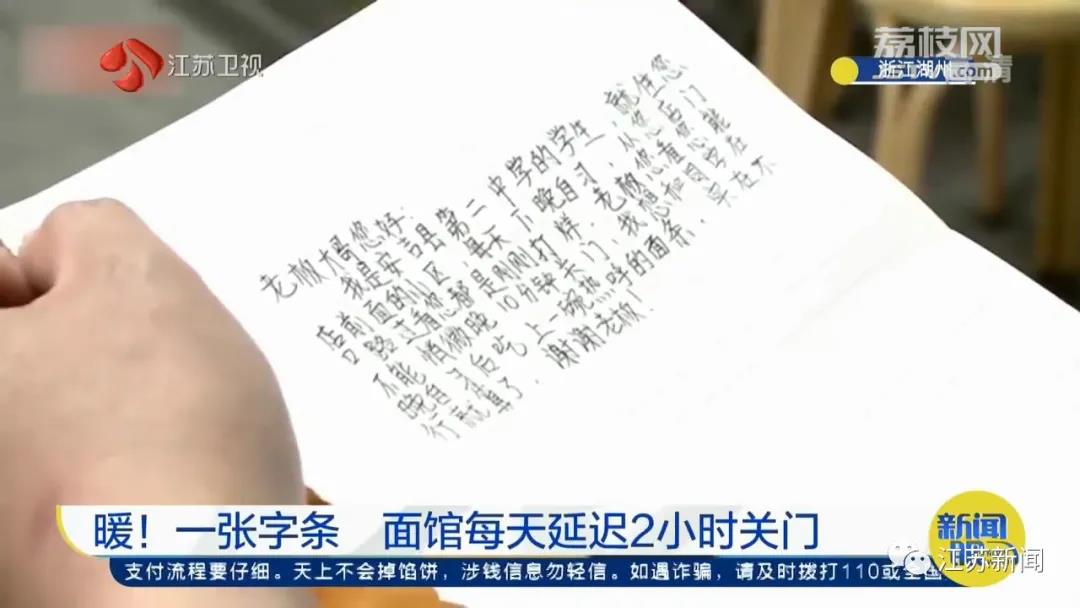 江苏卫视
荔枝网
浙江湖州
.com
老板大哥您好：
我是安吉县第二中学的学生，就住您
店前面的小区，每天下晚自习，从您店门
口路过看您都是刚刚打样，老板您看您能
不能稍微晚10分钟关门，我想和同学在
晚自习后吃上一碗热呼的面条，实在不
行就算了，谢谢老板！
暖！一张字条 面馆每天延迟2小时关门
新闻
江苏新闻
支付流程要仔细。天上不会掉馅饼，涉钱信息勿轻信。如遇诈骗，请及时拨打110或全国